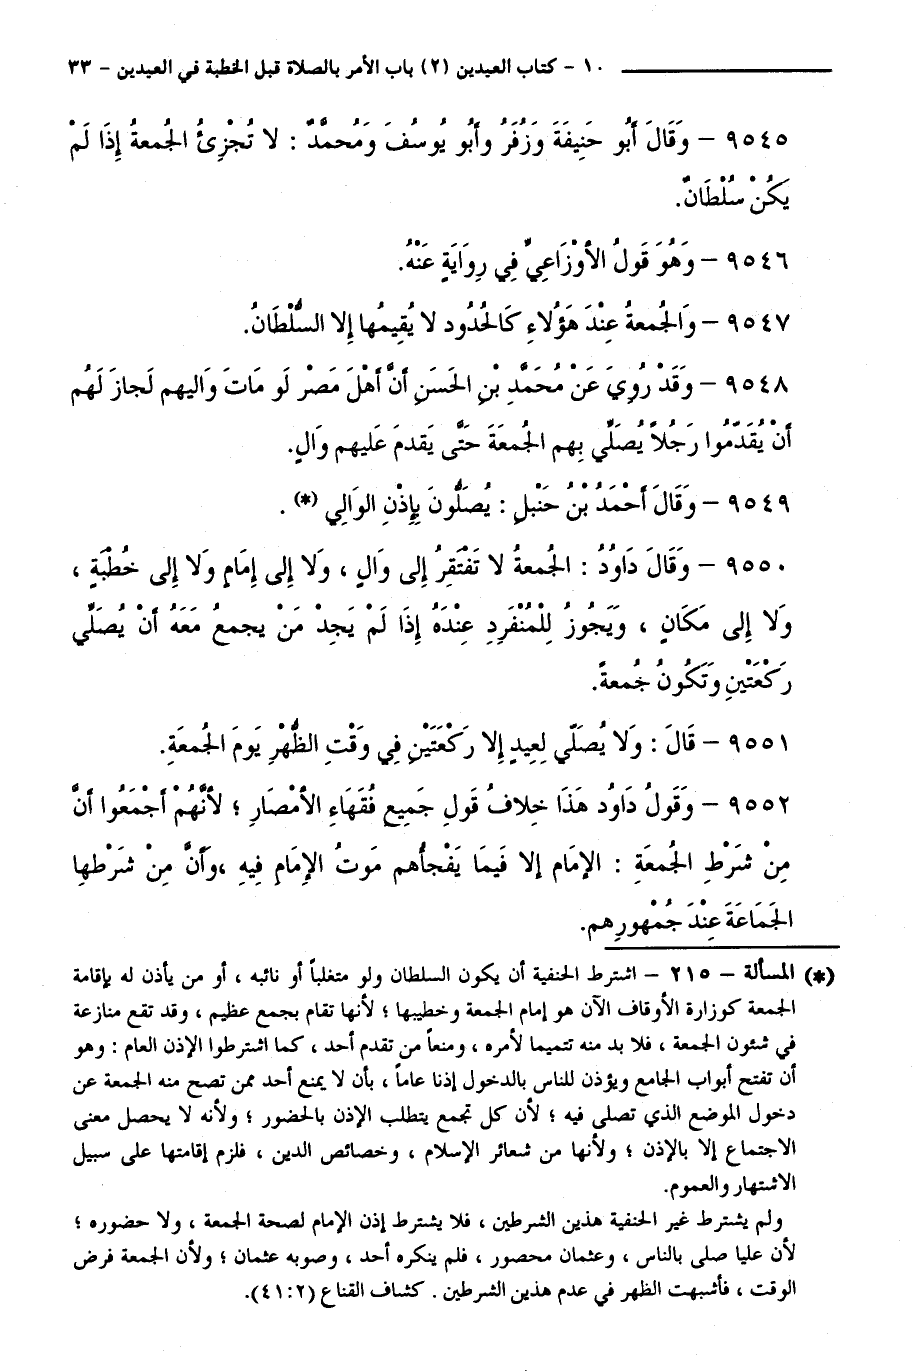 ١٠ - كتاب العيدين (٢) باب الأمر بالصلاة قبل الخطبة في العيدين - ٣٣
٩٥٤٥ - وَقَالَ أَبُو حَنِيفَةَ وَزُفَرُ وأَبُو يُوسُفَ وَمُحمَّدٌ : لا تُجْزِئُ الجُمعةُ إِذَا لَمْ
يَكُنْ سُلْطَانٌ.
٩٥٤٦ - وَهُوَ قَولُ الأوْزَاعِيِّ فِي رِوَايَةٍ عَنْهُ.
٩٥٤٧ - وَالجُمعةُ عِنْدَ هَؤُلاءِ كَالحُدُود لا يُقِيمُها إِلا السُّلْطَانُ.
٩٥٤٨ - وَقَدْ رُوِيَ عَنْ مُحَمَّدِ بْنِ الحَسَنِ أَنَّ أَهْلَ مَصْرَ لَو مَاتَ وَاليهم لَجازَ لَهُم
أَنْ يُقَدِّمُوا رَجُلاً يُصَلِّي بِهم الجُمعَةَ حَتَّى يَقدمَ عَليهم وَالٍ.
٩٥٤٩ - وَقَالَ أَحْمَدُ بْنُ حَنْبلٍ : يُصَلُّونَ بِإِذْنِ الوَالِي (*) .
٩٥٥٠ - وَقَالَ دَاوُدُ : الجُمعةُ لا تَفْتَقِرُ إِلى وَالٍ ، وَلا إِلى إِمَامٍ وَلا إِلى خُطْبَةٍ ،
وَلا إِلى مَكَانٍ ، وَيَجُوزُ لِلْمُنْفَرِدِ عِنْدَهُ إِذَا لَمْ يَجِدْ مَنْ يجمعُ مَعَهُ أَنْ يُصَلِّي
رَكْعَتْينِ وَتَكُونُ جُمعةً.
٩٥٥١ - قَالَ : وَلا يُصَلّي لِعِيدٍ إِلا رَكْعَتَيْنِ فِي وَقْتِ الظُّهْرِ يَومَ الجُمعَةِ.
٩٥٥٢ - وَقَولُ دَاوُد هَذَا خلافُ قَولِ جَميعِ فُقَهَاءِ الأمْصَارِ ؛ لأَنَّهُمْ أَجْمَعُوا أَنَّ
مِنْ شَرْطِ الجُمعَةِ : الإِمَام إِلا فِيمَا يَفْجأُهم مَوتُ الإِمَامِ فِيهِ ،وَأَنَّ مِنْ شَرْطها
الجَمَاعَةَ عِنْدَ جُمْهُورِهم.
(*) المسألة - ٢١٥ - اشترط الحنفية أن يكون السلطان ولو متغلباً أو نائبه ، أو من يأذن له بإقامة
الجمعة كوزارة الأوقاف الآن هو إمام الجمعة وخطيبها ؛ لأنها تقام بجمع عظيم ، وقد تقع منازعة
في شئون الجمعة ، فلا بد منه تتميما لأمره ، ومنعاً من تقدم أحد ، كما اشترطوا الإذن العام : وهو
أن تفتح أبواب الجامع ويؤذن للناس بالدخول إذنا عاماً ، بأن لا يمنع أحد ممن تصح منه الجمعة عن
دخول الموضع الذي تصلى فيه ؛ لأن كل تجمع يتطلب الإذن بالحضور ؛ ولأنه لا يحصل معنى
الاجتماع إلا بالإذن ؛ ولأنها من شعائر الإسلام ، وخصائص الدين ، فلزم إقامتها على سبيل
الاشتهار والعموم.
ولم يشترط غير الحنفية هذين الشرطين ، فلا يشترط إذن الإمام لصحة الجمعة ، ولا حضوره ؛
لأن عليا صلى بالناس ، وعثمان محصور ، فلم ينكره أحد ، وصوبه عثمان ؛ ولأن الجمعة فرض
الوقت ، فأشبهت الظهر في عدم هذين الشرطين . كشاف القناع (٤١:٢).